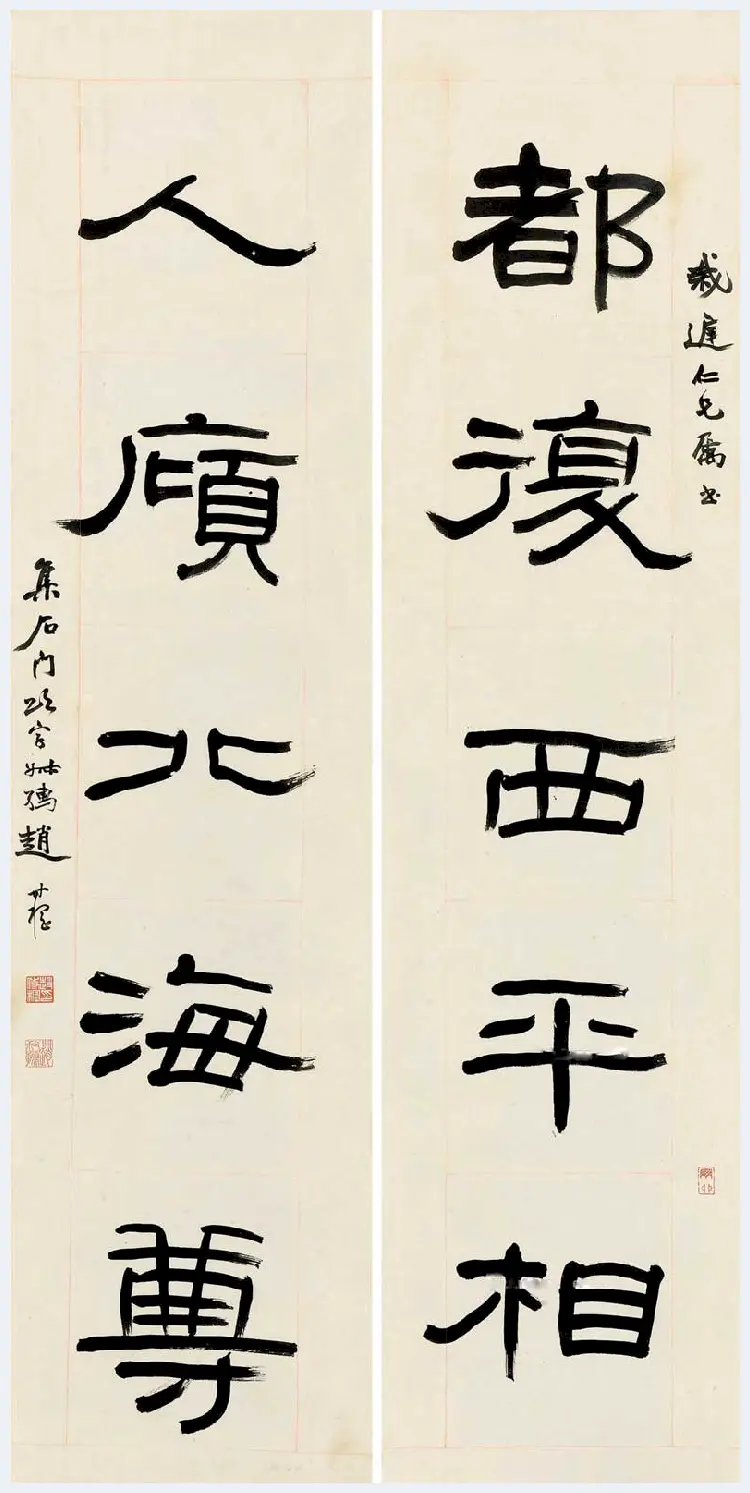 仁兄屬書
都復西平相
人願北海尊
集石門頌字叔孺趙時棡